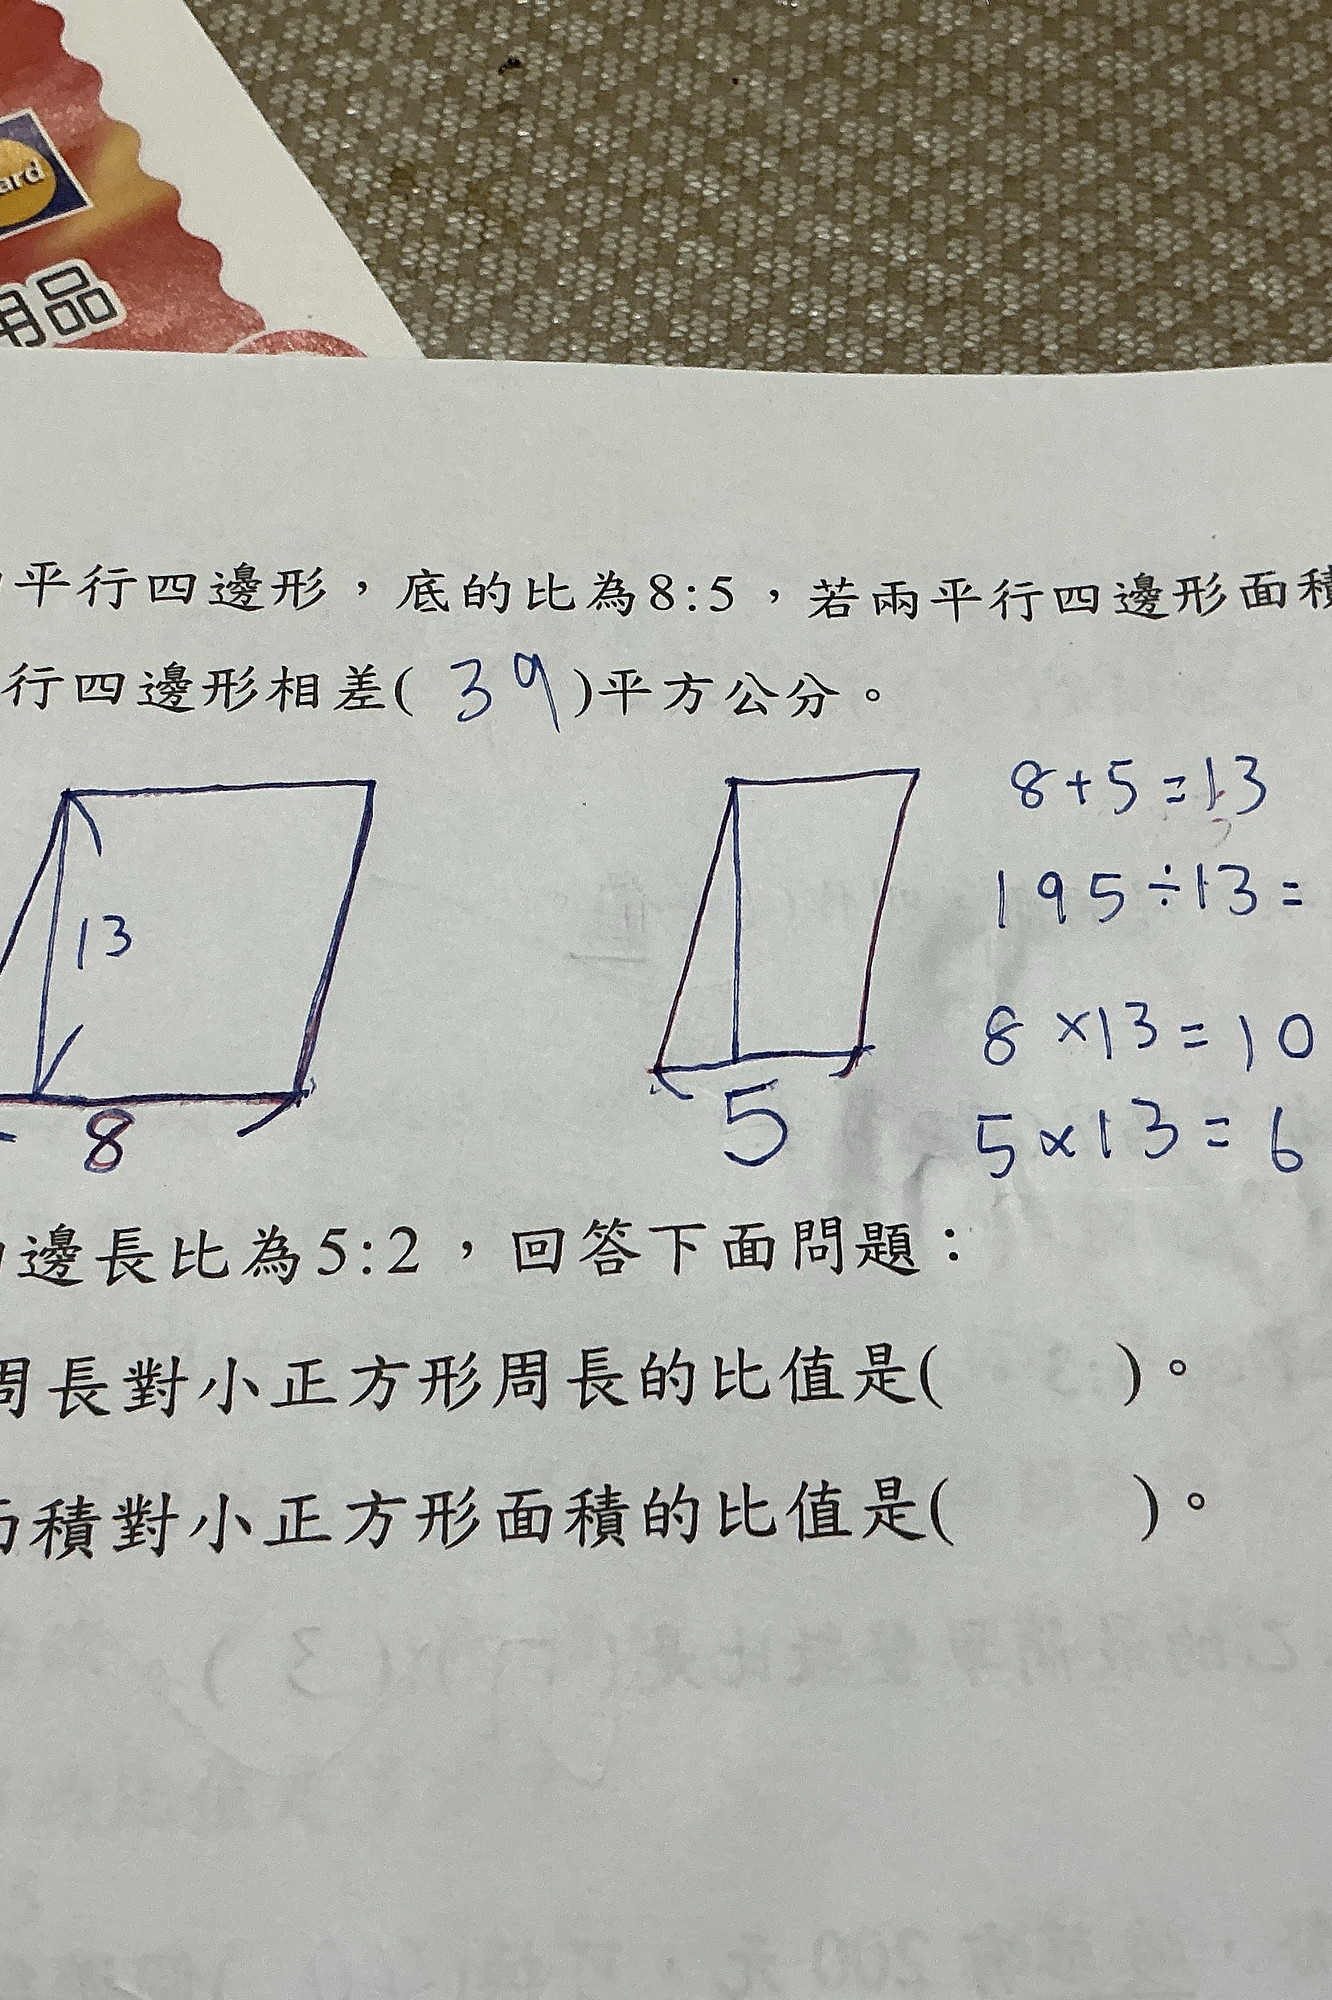 ard
用品
平行四邊形，底的比為8:5，若兩平行四邊形面積
行四邊形相差( 39 )平方公分。
13
8
5
8+5=13
195÷13=
8×13=10
5×13=6
邊長比為5:2，回答下面問題：
周長對小正方形周長的比值是( )。
面積對小正方形面積的比值是( )。